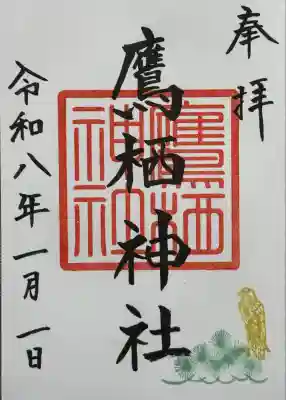 奉拝
鷹栖神社
鷹栖神社
令和八年一月一日